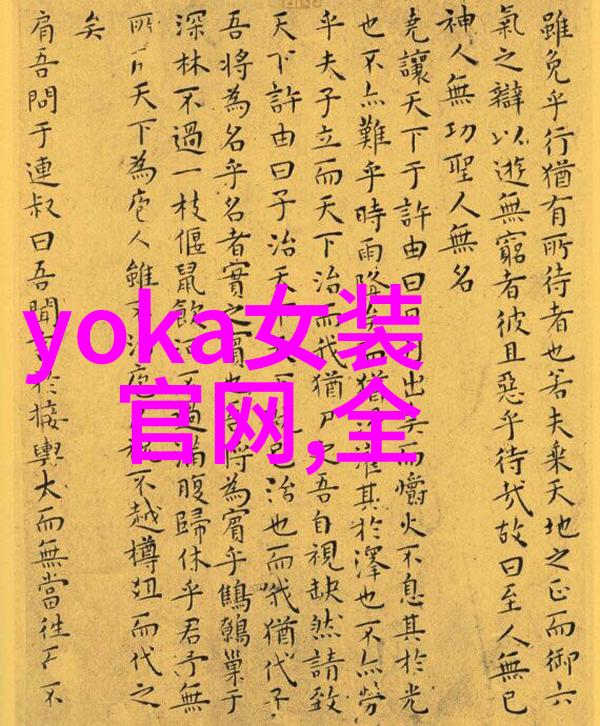 雖免乎行猶有所待者也若夫乗天地之正而御六
氣之辯以遊無窮者彼且惡乎待哉故曰至人無己
神人無功聖人無名
堯讓天下于許由曰日出矣而爝火不息其於光
也不亦難乎時雨降矣而猶灌其於澤也不亦勞
乎夫子立而天下治而代猶尸之吾自視缺然請致
天下許由曰子治天下也而我猶代子
吾将為名乎名者實之賓也為賓乎鷦鷯巢于
深林不過一枝偃鼠飲河不過滿腹歸休乎君予無
所天下為庖人雖不治庖不越樽俎而代之
矣
肩吾問于連叔曰吾聞言於接輿大而無當往不
yoka女装
官网,全